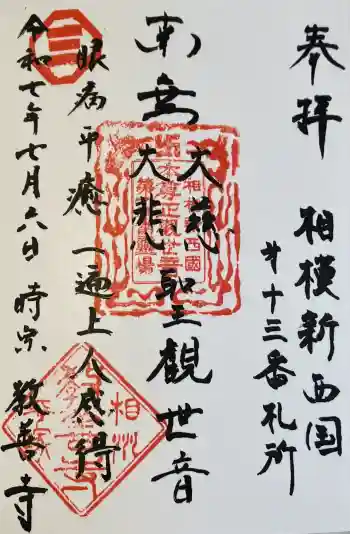 奉拝
相模新西国
第十三番札所
南無
大慈
大悲
聖観世音
眼病平癒
一遍上人感得
令和七年七月六日
時宗
教善寺
相模新西國
本尊正観世音
相州